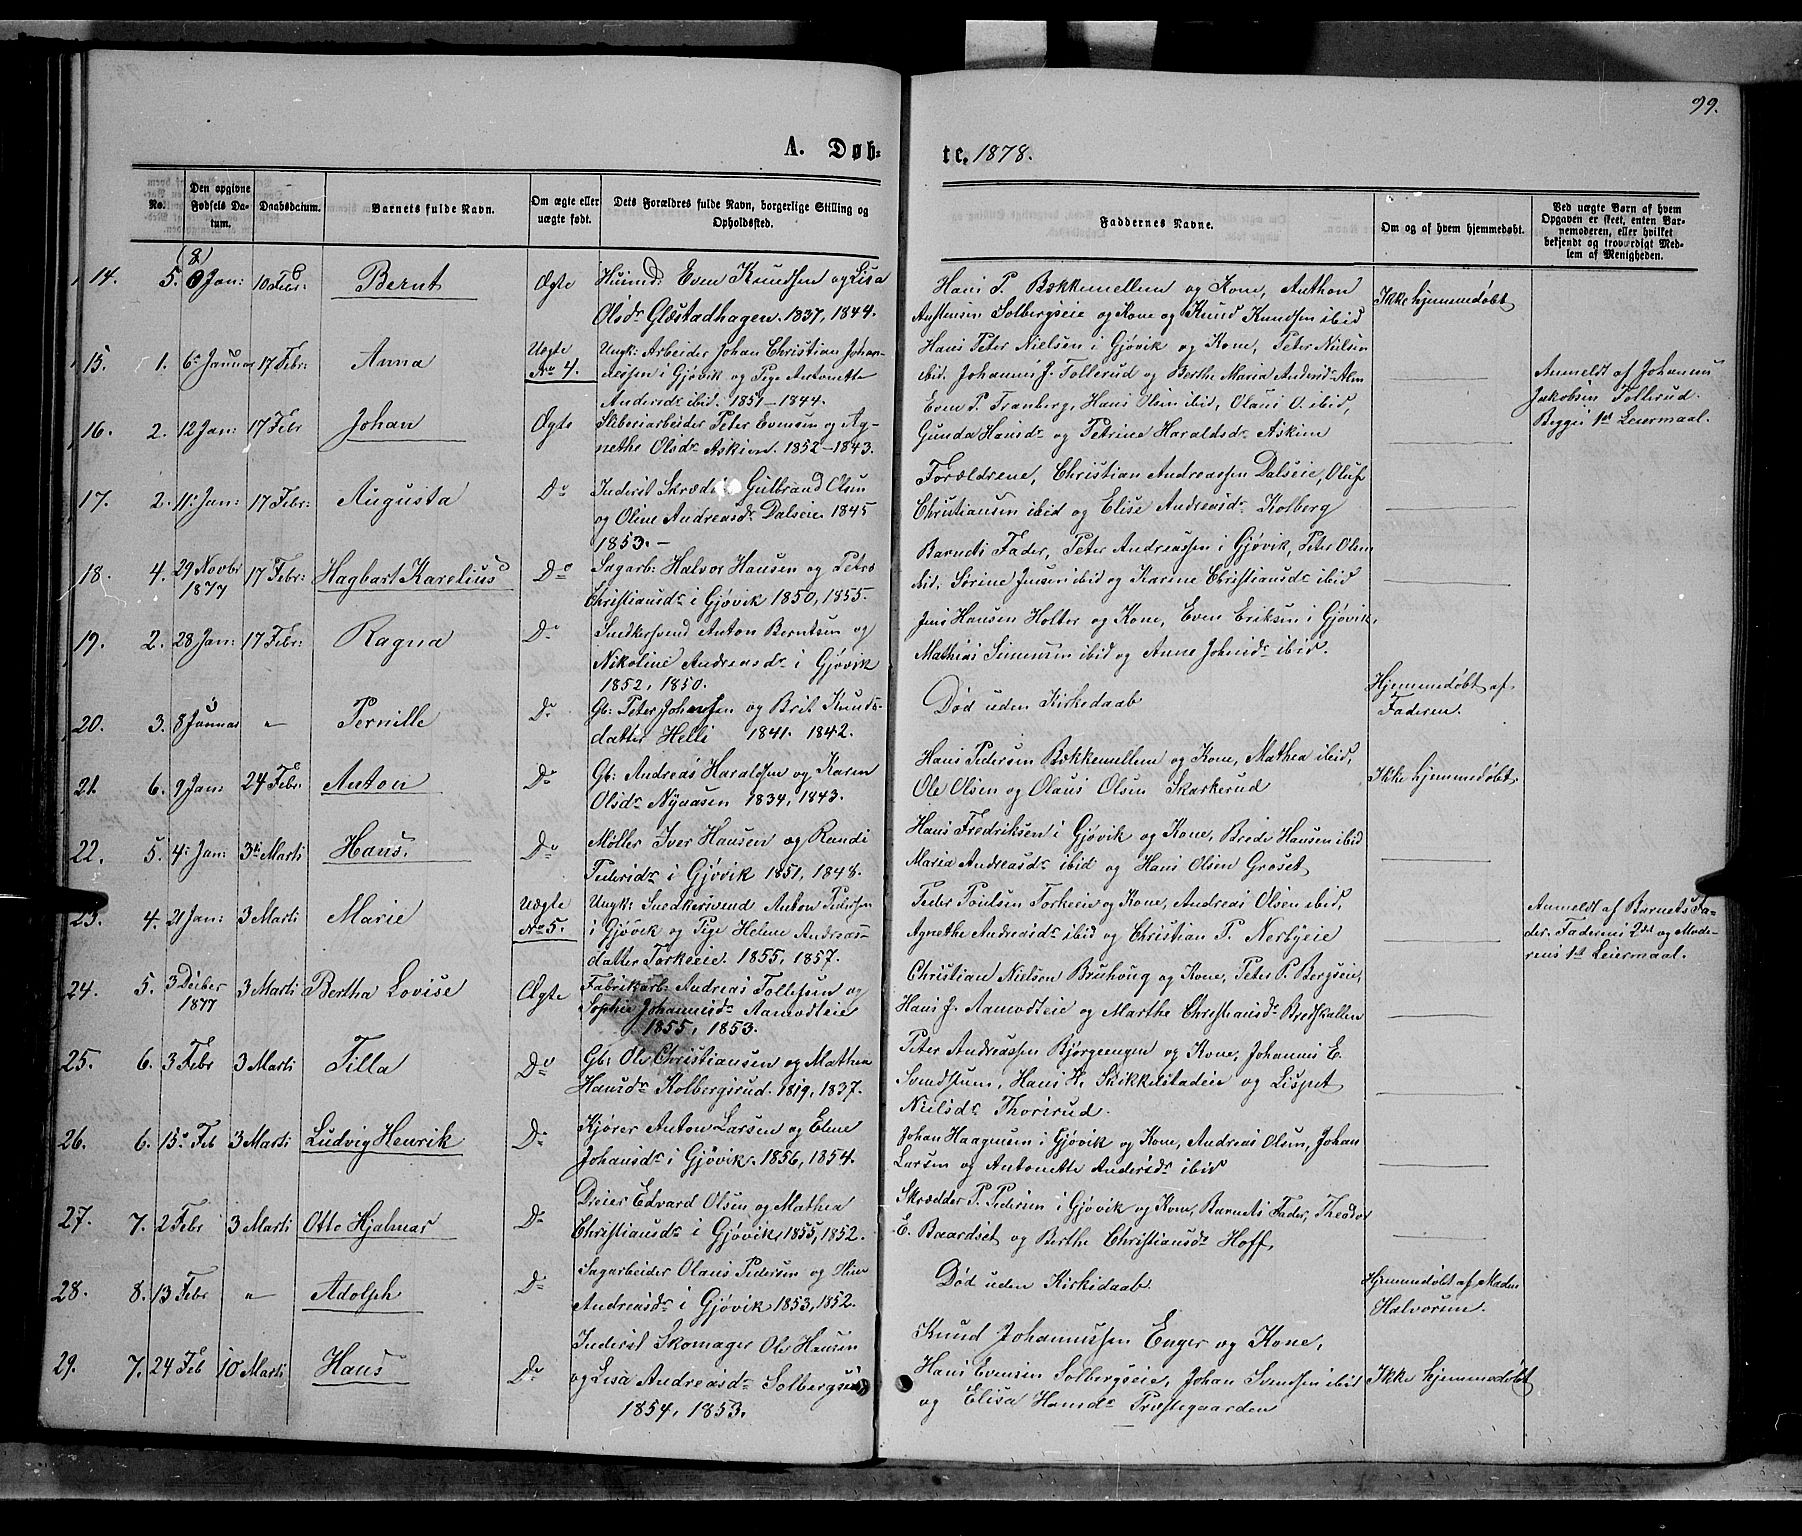 99.
A. Døb-
te. 1878.
No.
Den opgivne Fødsels Datum.
Daabsdatum.
Barnets fulde Navn.
Om ægte eller uægte født.
Dets Forældres fulde Navn, borgerlige Stilling og Opholdssted.
Faddernes Navne.
Om og af hvem hjemmedøbt.
Ved uægte Børn af hvem Opgaven er skeet, enten Barnemoderen, eller hvilket bekjendt og troværdigt Medlem af Menigheden.
(8)
14. 5. Jan: 10 Febr: Bernt Ægte
Husmd: Even Knudsen og Lisa
Olsdr Glæstadhagen. 1837, 1844.
Hans P. Bækkemellem og Kone, Anthon
Austensen Solbergseie og Kone og Knud Knudsen ibid
Ikke hjemmedøbt
15. 1. 6 Januar 17 Febr. Anna Uægte No 4.
Ungk: Arbeider Johan Christian Johan-
nessen i Gjøvik og Pige Antonette
Andersdr ibid. 1851 - 1844.
Hans Peter Nielsen i Gjøvik og Kone, Peter Nielsen
ibid. Johannes J. Tollerud og Berthe Maria Andersdr Alm
Anmeldt af Johannes
Jakobsen Tollerud.
Begges 1st Leiermaal.
16. 2. 12 Jan: 17 Febr Johan Ægte
Sliberiarbeider Peter Evensen og Ag-
nethe Olsdr Askim. 1852 - 1843.
Even P. Tranberg, Hans Olsen ibid, Olaus O. ibid,
Gunda Hansdr og Petrine Haraldsdr Askim
17. 2. 11 Jan: 17 Febr: Augusta Do
Inderst Skræder Gulbrand Olsen
og Oline Andreasdr Dalseie. 1845
1853. -
Forældrene, Christian Andreassen Dalseie, Oluf
Christiansen ibid og Elise Andreasdr Kolberg
18. 4. 29 Novbr 1877 17 Febr: Hagbart Karelius Do
Sagarb: Halvor Hansen og Petra
Christiansdr i Gjøvik 1850, 1855.
Barnets Fader, Peter Andreassen i Gjøvik, Peter Olsen
ibid. Sørine Jensen ibid og Karine Christiansdr ibid
19. 2. 28 Jan: 17 Febr: Ragna Do
Snedkersvend Anton Berntsen og
Nikoline Andreasdr i Gjøvik
1852, 1850.
Jens Hansen Holter og Kone, Even Eriksen i Gjøvik,
Mathias Simensen ibid og Anne Johnsdr ibid.
20. 3. 8 Januar " Pernille Do
Gb: Peter Johansen og Brit Knuds-
datter Helli 1841. 1842.
Død uden Kirkedaab
Hjemmedøbt af
Faderen.
21. 6. 9 Jan: 24 Febr. Anton Do
Gb: Andreas Haraldsen og Karen
Olsdr Nyaasen 1834, 1843.
Hans Pedersen Bækkemellem og Kone, Mathea ibid,
Ole Olsen og Olaus Olsen Skarkerud
Ikke hjemmedøbt
22. 5. 4 Jan: 3 Marti Hans. Do
Møller Iver Hansen og Randi
Pedersdr i Gjøvik 1851, 1848.
Hans Fredriksen i Gjøvik og Kone, Brede Hansen ibid
Maria Andreasdr ibid og Hans Olsen Groset
23. 4. 21 Jan: 3 Marti Marie Uægte No 5.
Ungk: Snedkersvend Anton Pedersen
i Gjøvik og Pige Helene Andreas-
datter Torkeie. 1855, 1857.
Peder Poulsen Torkeie og Kone, Andreas Olsen ibid,
Agnethe Andreasdr ibid og Christian P. Nerbyeie
Anmeldt af Barnets Fa-
der. Faderens 2det og Mode-
rens 1st Leiermaal.
24. 5. 3 Decber 1877 3 Marti Bertha Lovise Ægte
Fabrikarb. Andreas Tollefsen og
Sophie Johannesdr Aamodteie
1855, 1853.
Christian Nielsen Bruhoug og Kone, Peter P. Bergseie,
Hans J. Aamodteie og Marthe Christiansdr Bredskallen
25. 6. 3 Febr 3 Marti Tilla Do
Gb: Ole Christiansen og Mathea
Hansdr Kolbergsrud. 1819, 1837.
Peter Andreassen Bjørgeengen og Kone, Johannes E.
Svendstuen, Hans K. Skikkelstadeie og Lispet
Nielsdr Thorsrud.
26. 6. 15 Feb 3 Marti Ludvig Henrik Do
Kjører Anton Larsen og Elene
Johansdr i Gjøvik. 1856, 1854.
Johan Haagensen i Gjøvik og Kone, Andreas Olsen, Johan
Larsen og Antonette Andersdr ibid
27. 7. 2 Febr 3 Marti Otto Hjalmar Do
Dreier Edvard Olsen og Mathea
Christiansdr i Gjøvik 1855, 1852.
Skrædder P. Pedersen i Gjøvik og Kone, Barnets Fader, Theodor
E. Baardset og Berthe Christiansdr Hoff.
28. 8. 13 Febr " Adolph Do
Sagarbeider Olaus Pedersen og
Andreasdr i Gjøvik 1853, 1852.
Død uden Kirkedaab.
Hjemmedøbt af
Halvorsen.
29. 7. 24 Feb 10 Marti Hans Do
Inderst Skomager Ole Hansen
og Lisa Andreasdr Solbergseie
1854, 1853.
Knud Johannessen Enger og Kone,
Hans Evensen Solbergseie, Johan Svendsen ibid
og Elisa Hansdr Præstegaarden
Ikke hjemmedøbt